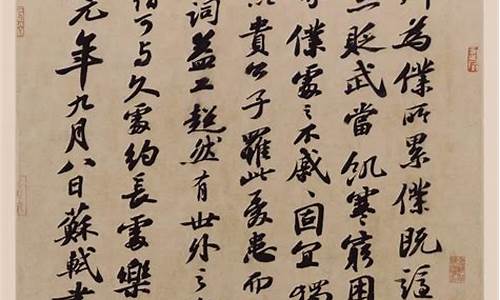 為僕所累僕既謫
亦貶武當飢寒窮困
僕處之不戚〻固宜獨
以貴公子罹此憂患而
詞益工超然有世外之
謂可与久處約長處樂
元年九月八日蘇軾書